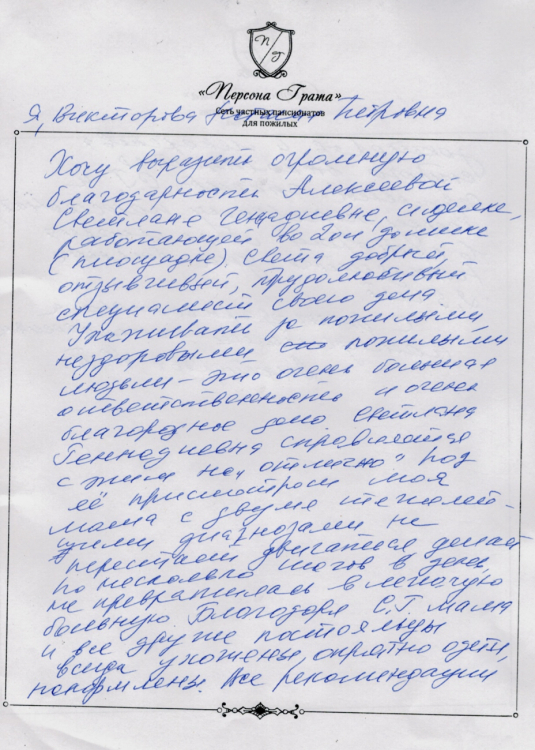 П Г
«Персона Грата»
Сеть частных пансионатов
для пожилых
Я, Викторова Петровна
Хочу выразить огромную
благодарность Алексеевой
Светлане Генадиевне, сиделке,
работающей во 2ом домике
(площадке). Света добрый,
отзывчивый, трудолюбивый
специалист своего дела.
Ухаживать за пожилыми,
нездоровыми пожилыми
людьми – это очень большая
ответственность и очень
благородное дело. Светлана
Геннадиевна справляется
с этим на „отлично". Под
её присмотром моя
мама с двумя тяжелей-
щими диагнозами не
перестаёт двигаться, делает
по несколько шагов в день,
не превратилась в лежачую
больную. Благодаря С.Г. мама
и все другие постояльцы
всегда ухожены, опрятно одеты,
накормлены. Все рекомендации